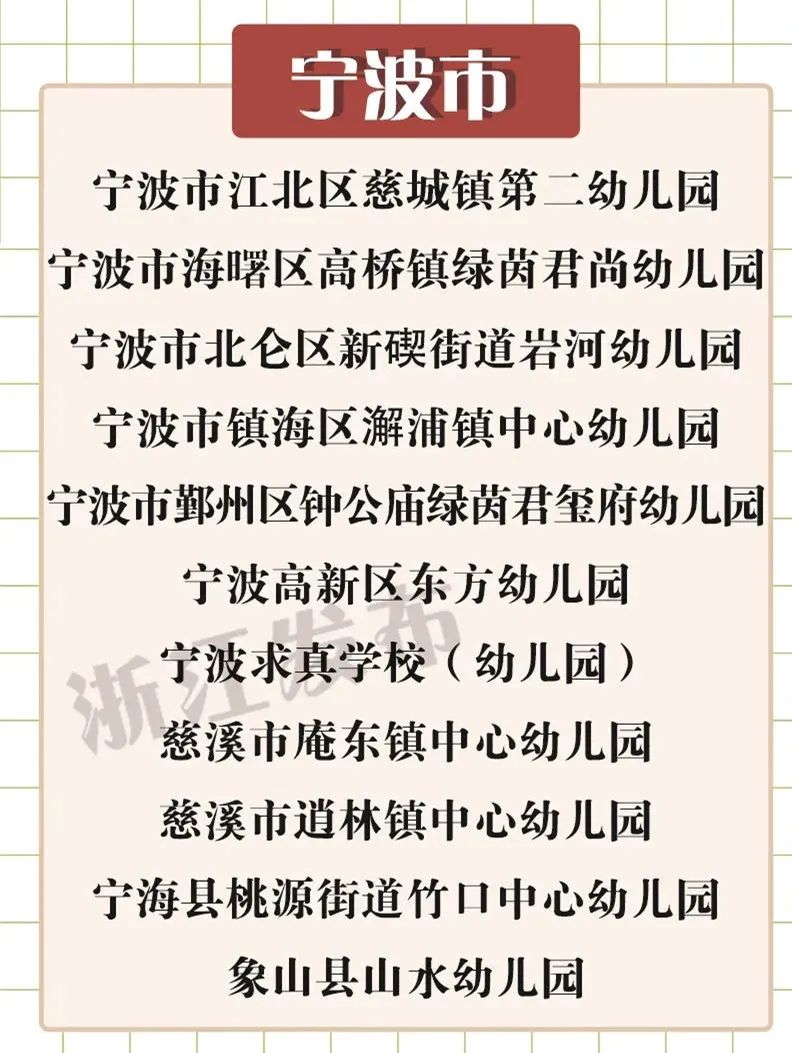 宁波市
宁波市江北区慈城镇第二幼儿园
宁波市海曙区高桥镇绿茵君尚幼儿园
宁波市北仑区新碶街道岩河幼儿园
宁波市镇海区澥浦镇中心幼儿园
宁波市鄞州区钟公庙绿茵君玺府幼儿园
宁波高新区东方幼儿园
浙江发布
宁波求真学校（幼儿园）
慈溪市庵东镇中心幼儿园
慈溪市逍林镇中心幼儿园
宁海县桃源街道竹口中心幼儿园
象山县山水幼儿园